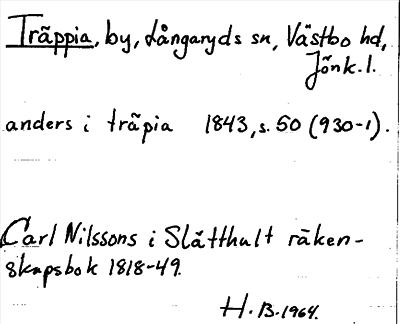 Träppia, by, Långaryds sn, Västbo hd,
Jönk. l.
anders i träpia 1843, s. 50 (930-1).
Carl Nilssons i Slätthult räken-
skapsbok 1818-49.
H. B. 1964.